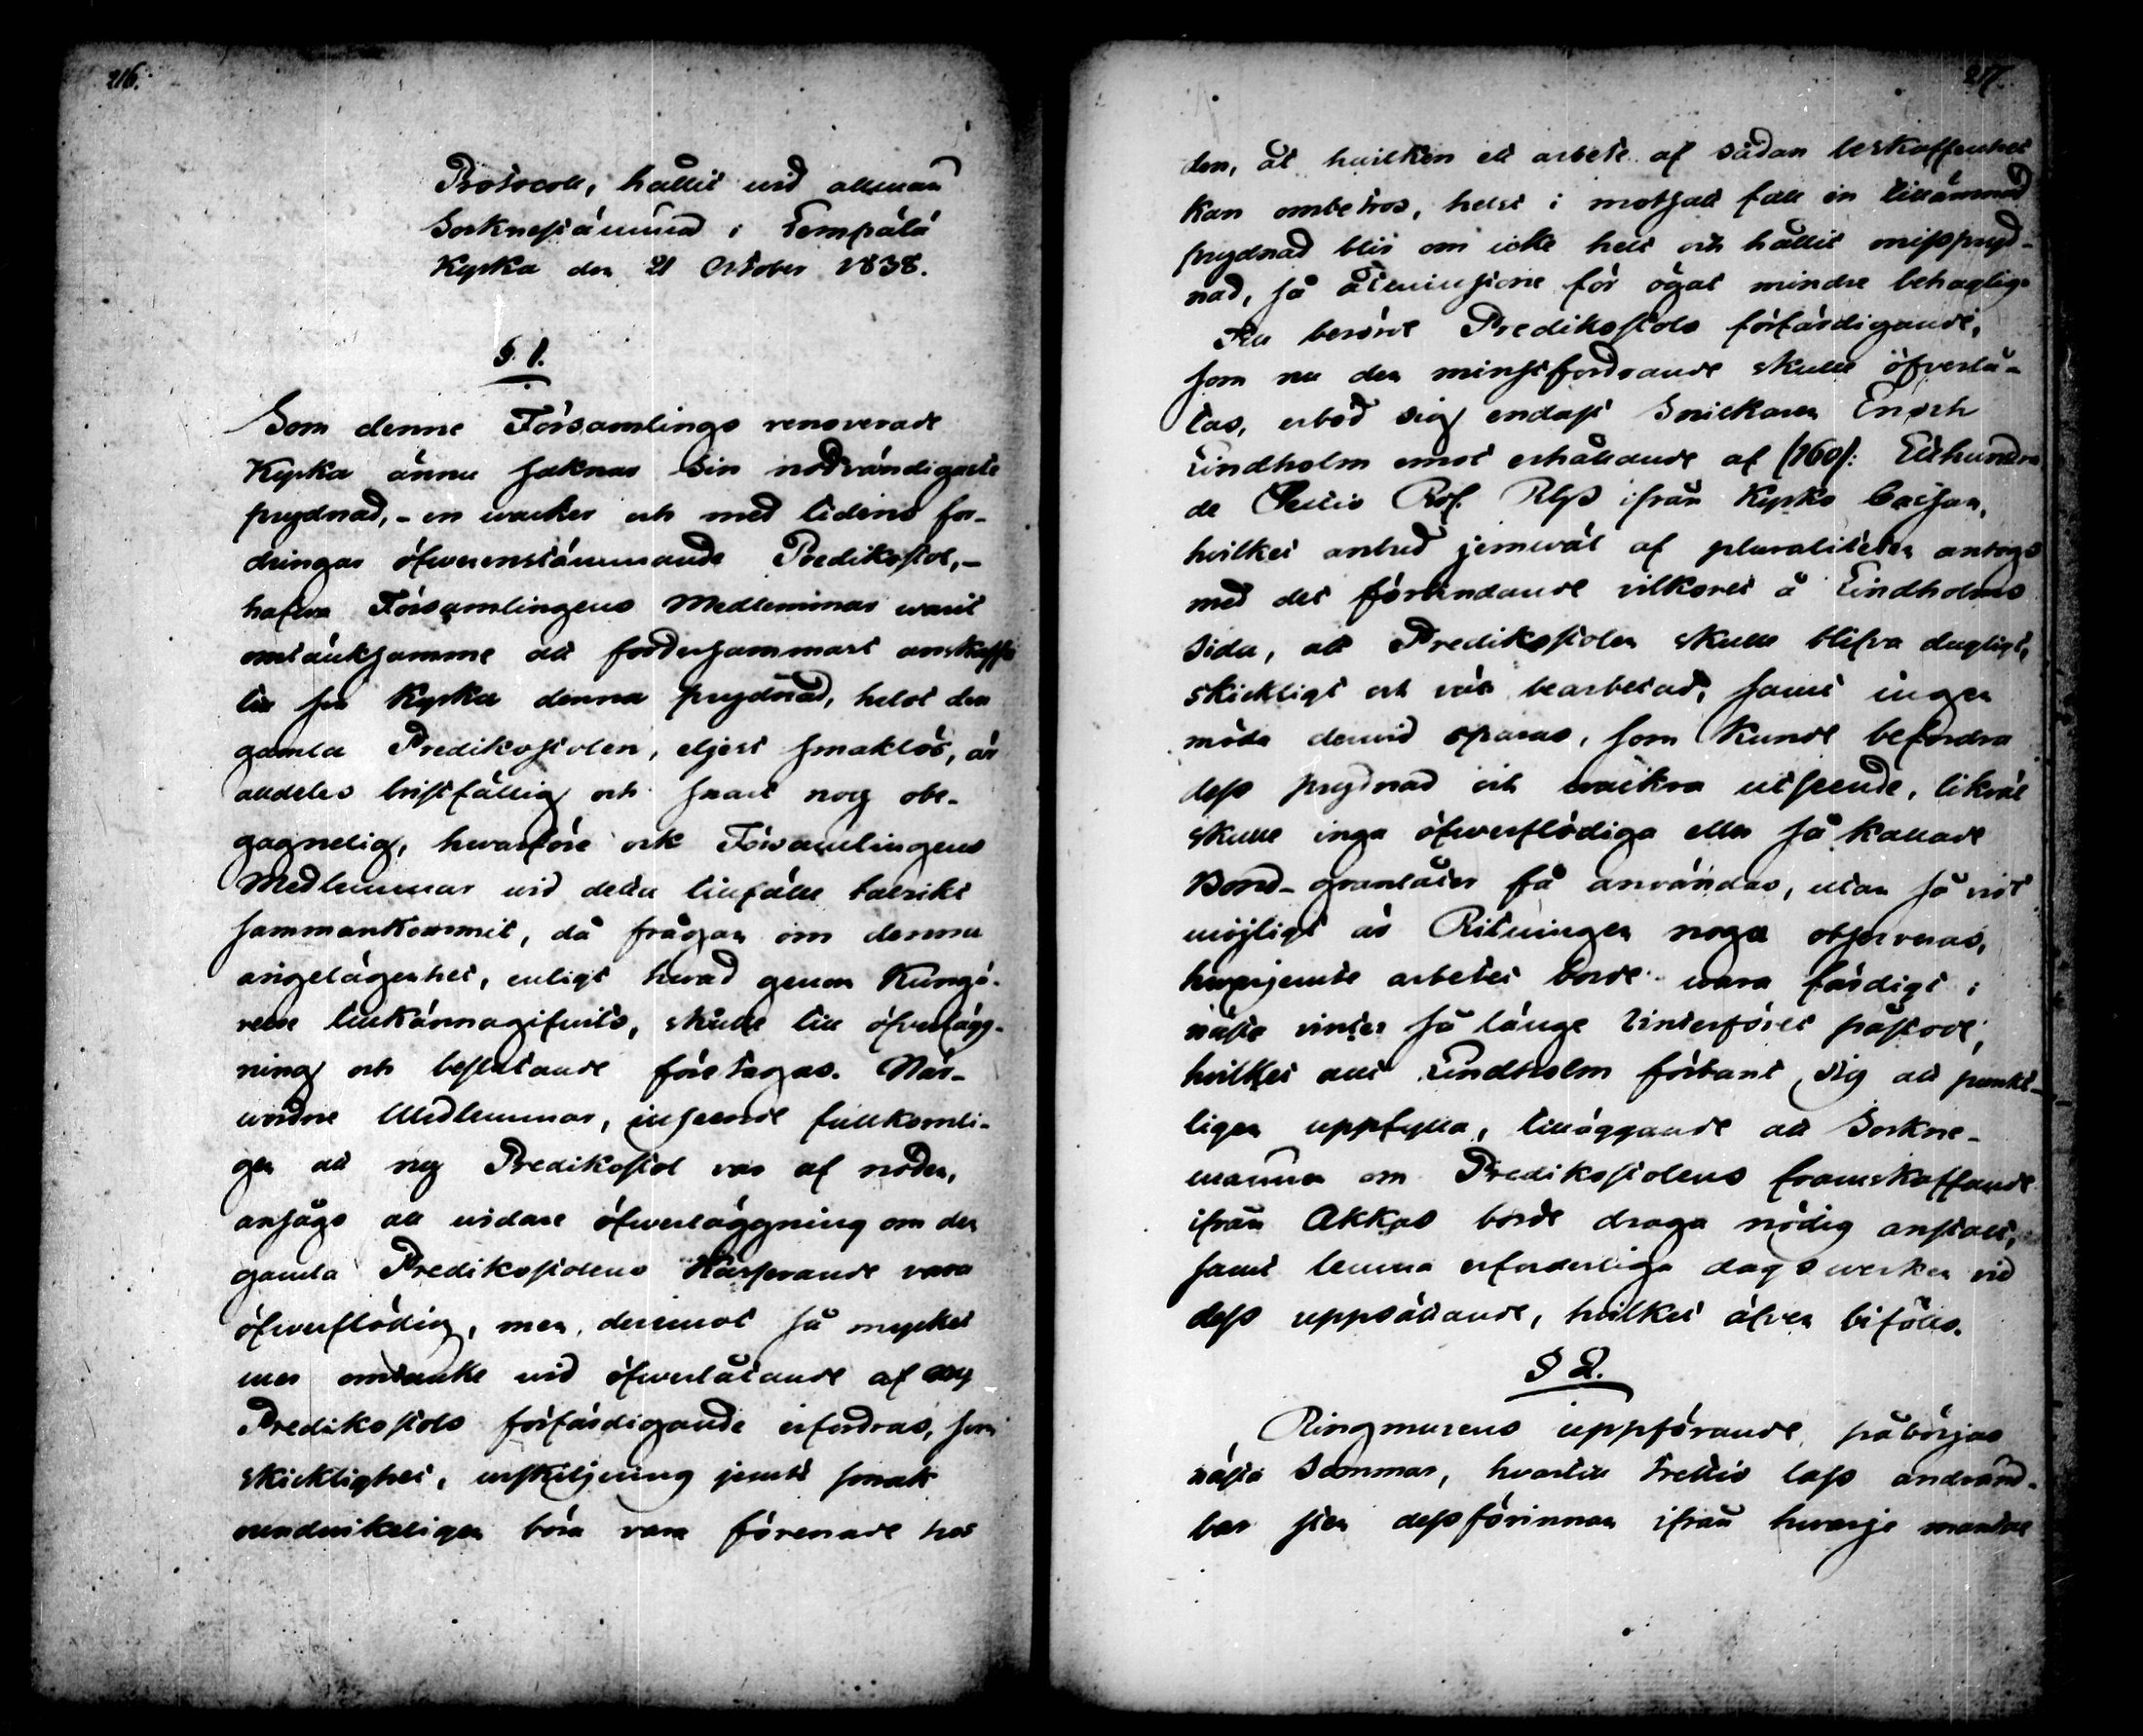 216.
Protocoll, hållit vid allmän
Socknestämma i Tempälä
Kyrka den 21 October 1838.
§ 1.
Som denne Församlings renoverade
Kyrka ännu saknar sin nödvändigaste
prydnad, - en vacker och med tidens for-
dringar öfwerenstämmande Predikostol, -
hafva Församlingens Medlemmar warit
omtänksamme att fodersammast anskaffa
till sin Kyrka denna prydnad, helst den
gamla Predikostolen, eljest smaklös, är
alldeles bristfällig och snart nog obe-
gagnelig, hwarföre ock Församlingens
Medlemmar vid detta tillfälle talrikt
sammankommit, då frågan om denna
angelägenhet, enligt hwad genom Kungö-
relse tillkännagifwits, skulle till öfverlägg-
ning och beslutande företagas. När-
varne Medlemmar, inseende fullkomli-
gen att ny Predikostol var af nöden,
ansågo all vidare öfwerläggning om den
gamla Predikostolens vara
öfwerflödig, men deremot så mycket
mer omtanke vid öfwerlåtande af ny
Predikostols förfärdigande erfordras, som
skicklighet, urskiljning jemte smak
ovndvikeligen böra vara förenade hos
217.
den, åt hvilken ett arbete af sådan beskaffenhet
kan ombetros, helst i motsatt fall en tillämnad
prydnad blir om icke helt och hållit misspryd-
nad, så åtminstone för ögat mindre behaglig.
Till berörde Predikostols förfärdigande,
som nu den minstfordrande skulle öfverlå-
tas, erböd sig endast Snickaren Enoch
Lindholm emot erhållande af (160): Etthundra
de Sextio Rub. Rbl. Ass ifrån Kyrko Cassan,
hvilket anbud jemwäl af pluraliteten antogs
med det förbindande vilkoret å Lindholms
sida, att Predikostolen skulle blifva dugligt,
skickligt och väl bearbetad, samt ingen
möda dervid sparas, som kunde befordra
dess prydnad och wackra utseende, likväl
skulle inga öfwerflödiga eller så kallade
Bond-grannlåter få användas, utan så vidt
möjligt är Ritningen noga observeras,
hwarjemte arbetet borde wara färdigt i
nästa vinter så länge Vinterföret påstode,
hvilket allt Lindholm förband sig att punkt-
ligen uppfylla, tilläggande att Sockne-
männen om Predikostolens framskaffande
ifrån Akkas borde draga nödig anstalt,
samt lemna erforderliga dagswerken vid
dess uppsättande, hvilket äfven biföllo.
§ 2.
Ringmurens uppförande påbörjas
nästa Sommar, hvartill trettio lass andvänd-
bar sten dessförinnan ifrån hwarje mantal